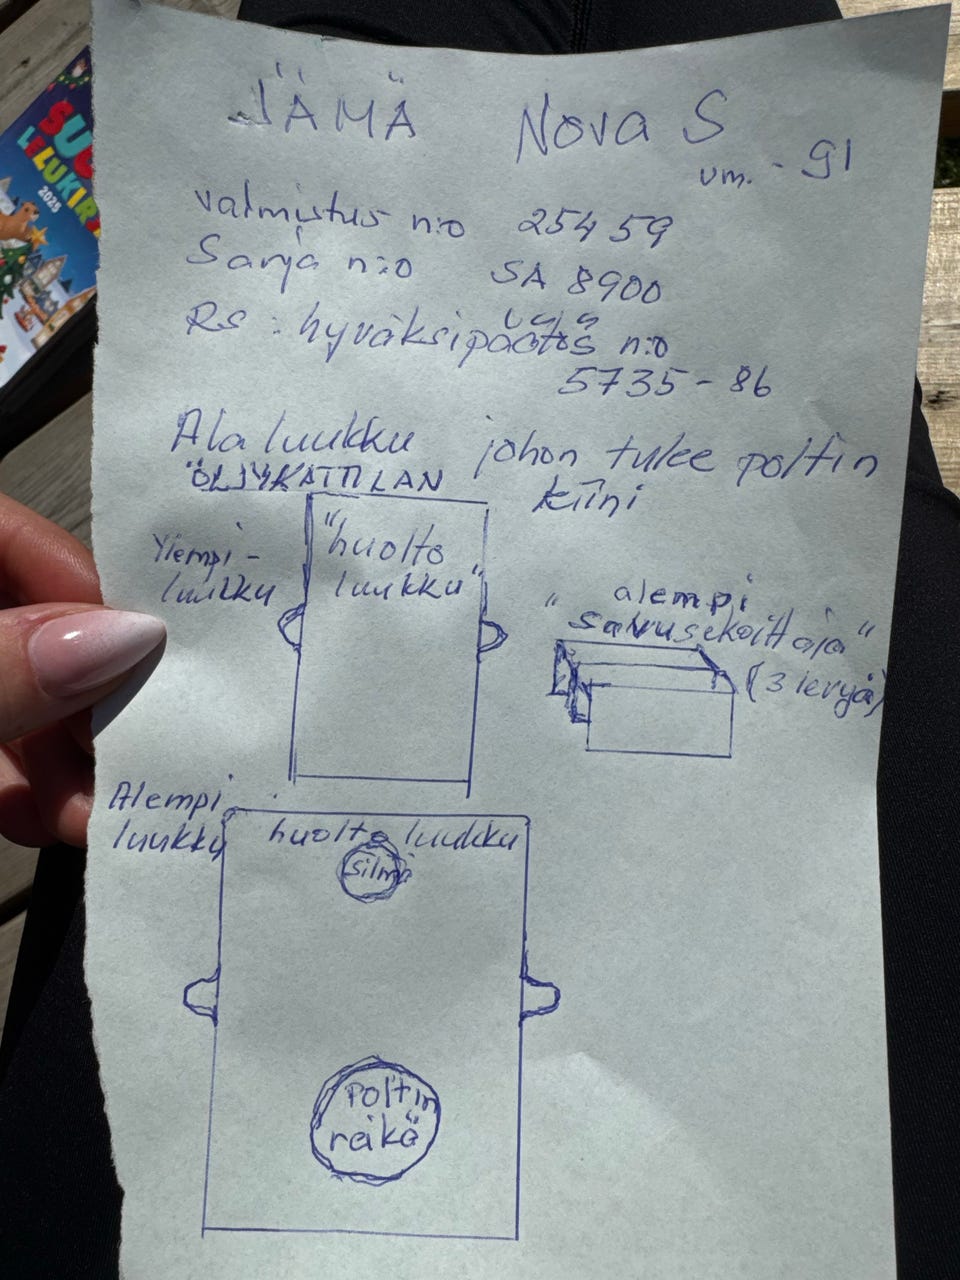 JÄMÄ Nova S
vm. - 91
valmistus n:o 25459
Sarja n:o SA 8900
RS : hyväksipäätös n:o
5735-86
Alaluukku johon tulee poltin
kiini
ÖLJYKATTILAN
Ylempi-
luukku
"huolto
luukku"
"alempi
savusekoittaja"
(3 levyä)
Alempi
luukku
huolto luukku
silmä
poltin
reikä
LELUKIR
2025